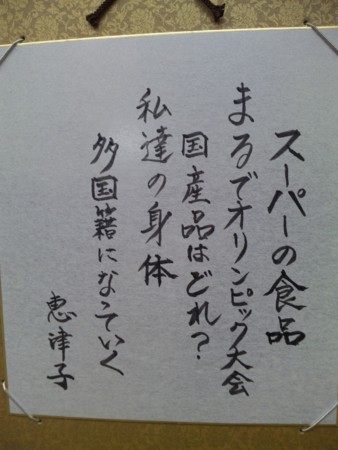 スーパーの食品
まるでオリンピック大会
国産品はどれ?
私達の身体
多国籍になっていく
恵津子